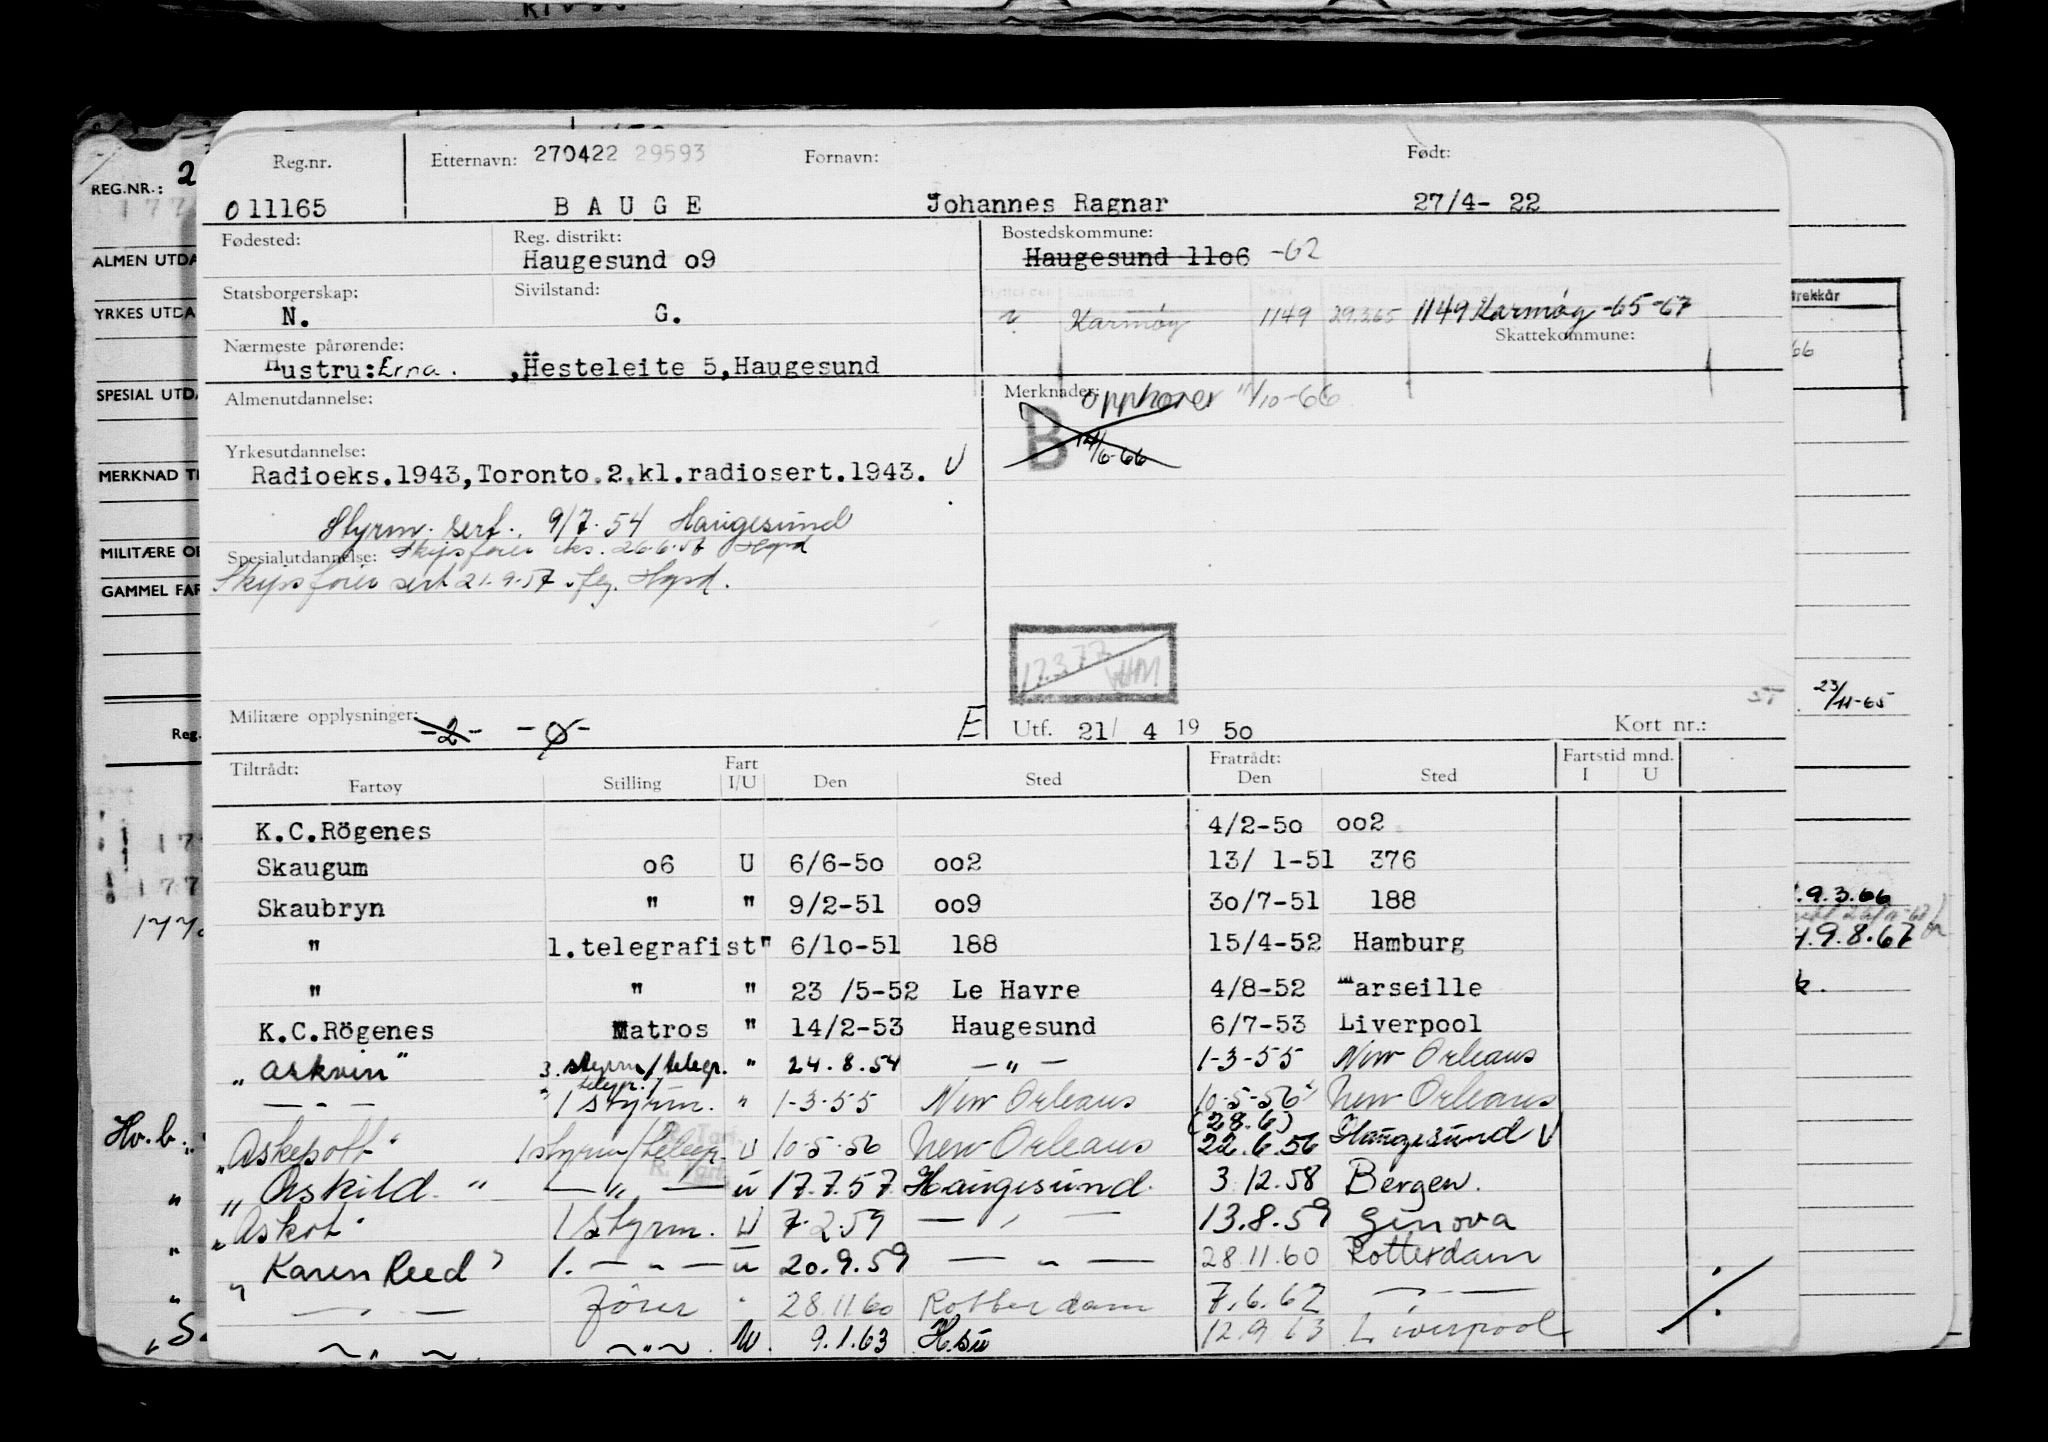 REG.NR.: 2
ALMEN UTDA
YRKES UTDA
SPESIAL UTDA
MERKNAD TI
MILITÆRE OP
GAMMEL FAR
Reg.
Reg.nr. Etternavn: 270422 29593 Fornavn: Født:
o 11165 B A U G E Johannes Ragnar 27/4- 22
Fødested: Reg. distrikt: Bostedskommune:
Haugesund o9 Haugesund 11o6 -62
Statsborgerskap: Sivilstand:
N. G. Karmøy 1149 29.3.65 1149 Karmøy -65-67
Nærmeste pårørende: Skattekommune:
Hustru: Erna. ,Hesteleite 5,Haugesund
Almenutdannelse: Merknader: Opphører 11/10-66
B 14/6-66
Yrkesutdannelse:
Radioeks.1943,Toronto.2.kl.radiosert.1943. U
Styrm. sert. 9/7.54 Haugesund
Spesialutdannelse: Skipsfører eks. 26.6.56 Hgsd
Skipsfører sert 21.9.57. Hgsd.
17.3.77
Militære opplysninger: -2- -0- E Utf. 21/ 4 19 50 Kort nr.:
23/11-65
Tiltrådt: Fart Fratrådt: Fartstid mnd.
Fartøy Stilling I/U Den Sted Den Sted I U
K.C.Rögenes 4/2-5o oo2
Skaugum o6 U 6/6-5o oo2 13/ 1-51 376
Skaubryn " " 9/2-51 oo9 3o/7-51 188
" 1.telegrafist" 6/1o-51 188 15/4-52 Hamburg
" " " 23 /5-52 Le Havre 4/8-52 Marseille
K.C.Rögenes Matros " 14/2-53 Haugesund 6/7-53 Liverpool
"Askvin" 3. styrm/telegr. " 24.8.54 — " — 1-3-55 New Orleans
— " — " telegr./ 1 styrm. " 1-3-55 New Orleans 10-5-56 New Orleans
(28.6)
Hv.b. "Askepott" 1 styrm/telegr. U 10-5-56 New Orleans 22.6.56 Haugesund U
" "Askild" — " — u 17.7.57 Haugesund. 3.12.58 Bergen.
" "Askot" 1 Styrm. U 7.2.59 — " — 13.8.59 Genova
" "Karen Reed" 1. — " — u 20.9.59 — " — 28.11.60 Rotterdam
— " — Fører " 28.11.60 Rotterdam 7.6.62 — " —
~ " ~ ~ " ~ U. 9.1.63 H.su 12.9.63 Liverpool
9.3.66
9.8.67